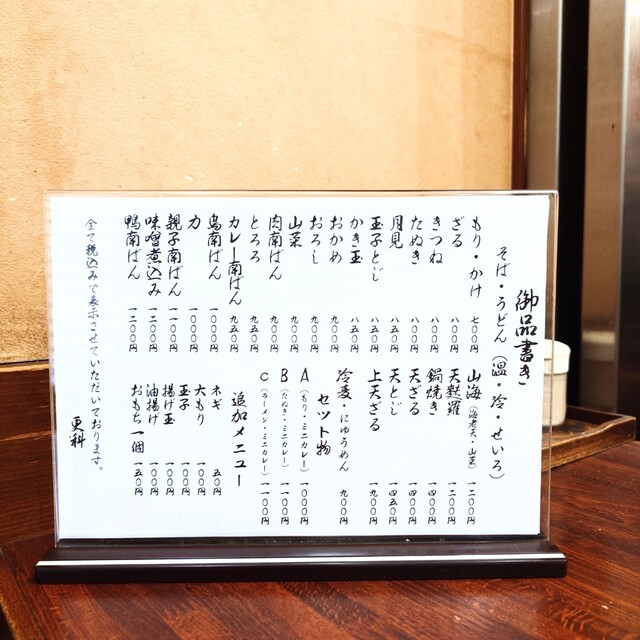 御品書き
そば・うどん（温・冷・せいろ）
もり・かけ 七〇〇円
ざる 八〇〇円
きつね 八〇〇円
たぬき 八〇〇円
月見 八五〇円
玉子とじ 八五〇円
かき玉 八五〇円
おかめ 九〇〇円
おろし 九〇〇円
山菜 九〇〇円
肉南ばん 九〇〇円
とろろ 九五〇円
カレー南ばん 九五〇円
鳥南ばん 一〇〇〇円
力 一〇〇〇円
親子南ばん 一一〇〇円
味噌煮込み 一二〇〇円
鴨南ばん 一二〇〇円
山海（海老天・山菜） 一二〇〇円
天麩羅 一二〇〇円
鍋焼き 一四〇〇円
天ざる 一四〇〇円
天とじ 一四五〇円
上天ざる 一九〇〇円
冷麦・にゅうめん 九〇〇円
セット物
A（もり・ミニカレー） 一〇〇〇円
B（たぬき・ミニカレー） 一一〇〇円
C（ラーメン・ミニカレー） 一一〇〇円
追加メニュー
ネギ 五〇円
大もり 一〇〇円
玉子 一〇〇円
揚げ玉 一〇〇円
油揚げ 一五〇円
おもち一個 一五〇円
全て税込みで表示させていただいております。
更科